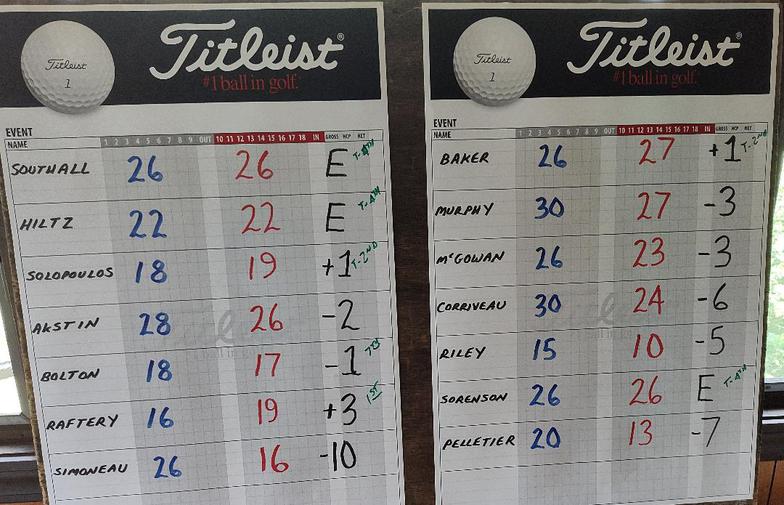 Titleist
1
Titleist®
#1 ball in golf.
EVENT
NAME 1 2 3 4 5 6 7 8 9 OUT 10 11 12 13 14 15 16 17 18 IN GROSS HCP NET
SOUTHALL 26 26 E T-4TH
HILTZ 22 22 E T-4TH
SOLOPOULOS 18 19 +1 T-2ND
AKSTIN 28 26 -2
BOLTON 18 17 -1 7TH
RAFTERY 16 19 +3 1ST
SIMONEAU 26 16 -10
Titleist
1
Titleist®
#1 ball in golf.
EVENT
NAME 1 2 3 4 5 6 7 8 9 OUT 10 11 12 13 14 15 16 17 18 IN GROSS HCP NET
BAKER 26 27 +1 T-2ND
MURPHY 30 27 -3
McGOWAN 26 23 -3
CORRIVEAU 30 24 -6
RILEY 15 10 -5
SORENSON 26 26 E T-4TH
PELLETIER 20 13 -7